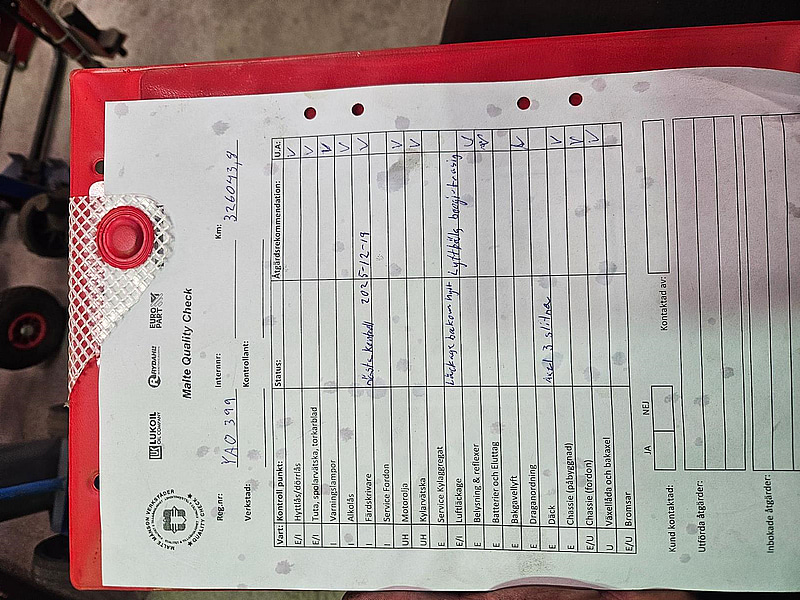 MALTE MÅNSON VERKSTÄDER
QUALITY CHECK
LUKOIL
OIL COMPANY
RYDAHLS
EURO PART
Malte Quality Check
Reg.nr: YAO 399 Internnr: Km: 326043,9
Verkstad: Kontrollant:
Vart: Kontroll punkt: Status: Åtgärdsrekommendation: U.A:
E/I Hyttlås/dörrlås V
E/I Tuta, spolarvätska, torkarblad V
I Varningslampor V
I Alkolås V
I Färdskrivare nästa kontroll 2025-12-19 V
I Service Fordon
UH Motorolja V
UH Kylarvätska V
E Service Kylaggregat
E/I Luftläckage Läckage bakom hytt Lyftbälg, boggi knasig
E Belysning & reflexer V
E Batterier och Eluttag V
E Bakgavellyft
E Draganordning V
E Däck axel 3 slitna
E Chassie (påbyggnad) V
E/U Chassie (fordon) V
U Växellåda och bakaxel V
E/U Bromsar
Kund kontaktad: JA NEJ Kontaktad av:
Utförda åtgärder:
Inbokade åtgärder: